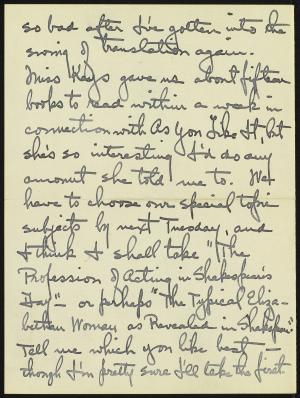 so bad after I've gotten into the
swing of translation again.
Miss Keys gave us about fifteen
books to read within a week in
connection with As You Like It, but
she's so interesting I'd do any
amount she told me to. We
have to choose our special topic
subjects by next Tuesday, and
I think I shall take "The
Profession of Acting in Shakespeare's
Day" - or perhaps "The Typical Eliza-
bethan Woman as Revealed in Shakespeare"
Tell me which you like best -
though I'm pretty sure I'll take the first